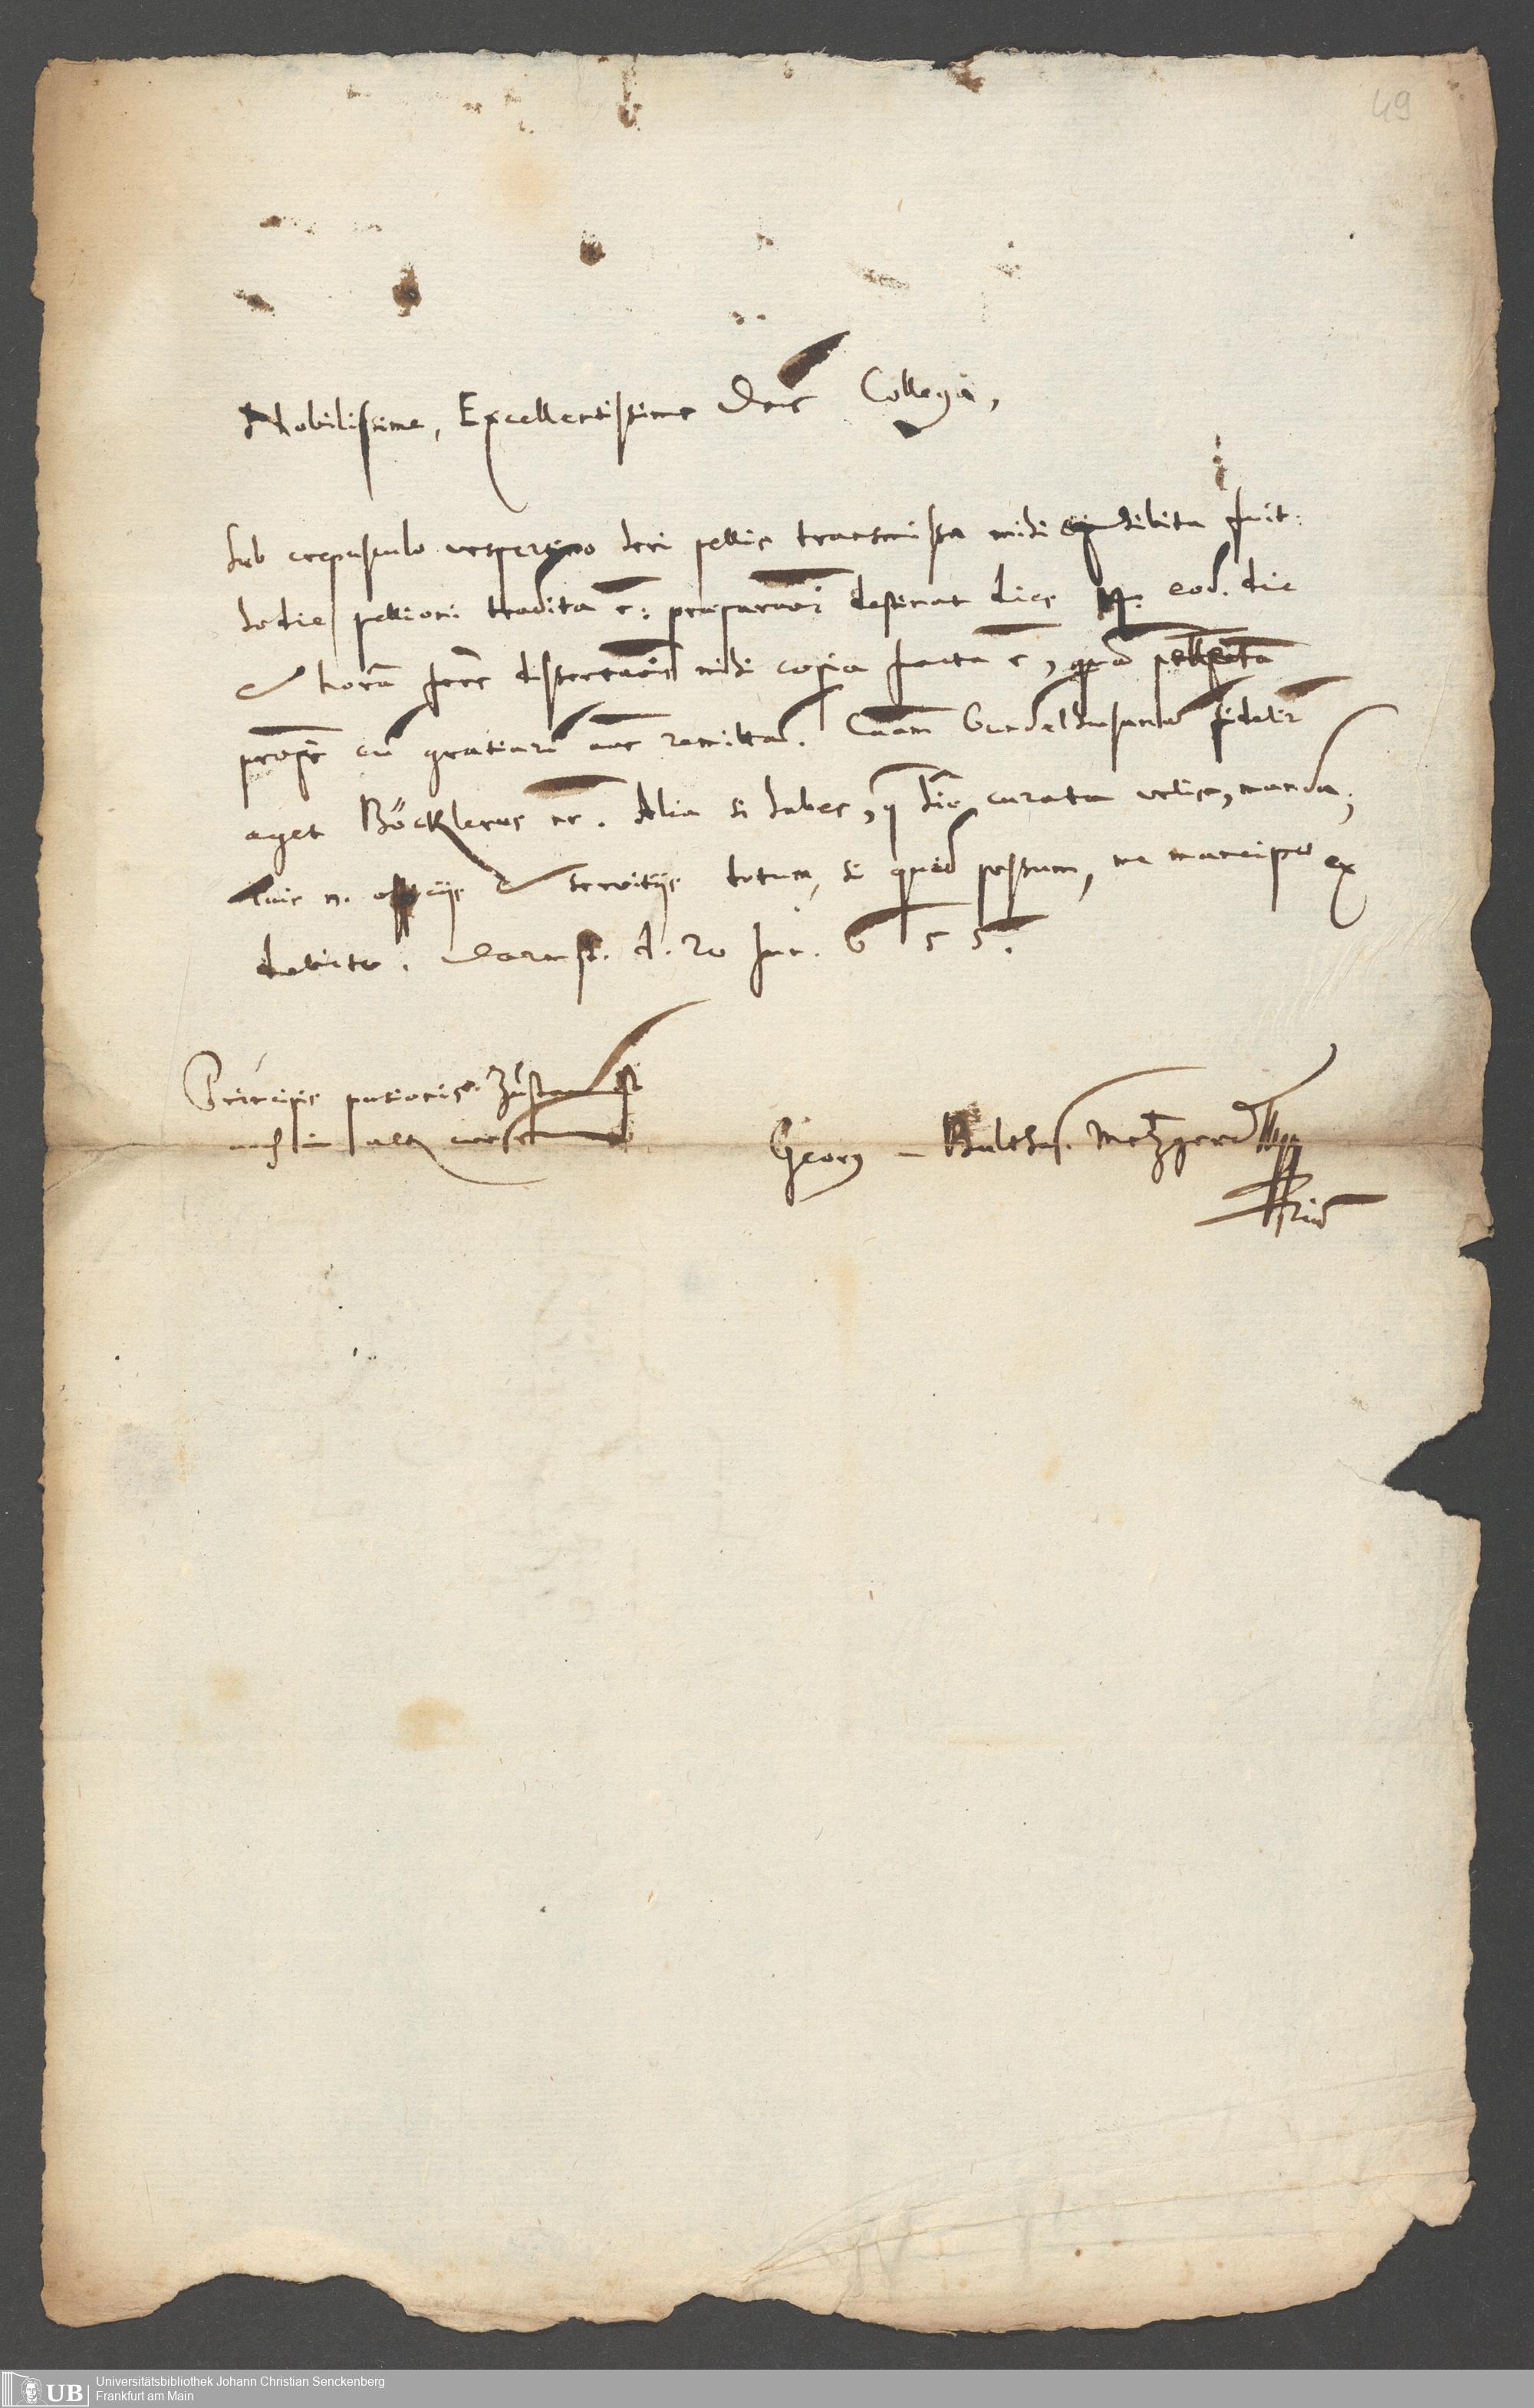 49
Nobilissime, Excellentissime Dne Collega,
Sub crepusculo vespertino heri pellis transmissa mihi exhibita fuit:
hodie pellioni tradita e: praeparaõi destinat dies 14. eod. die
& horâ ferè dissertaõis mihi copia facta e, quã
propè cũ gratiarũ aõe remittã. Caam Gundelshusanã fidelir
aget Böcklerus nr. Alia si habes, q hîc curata velis, manda;
tuis n. officijs & servitijs totum, si quid possum, me mancipo ex
debito. Darmst. d. 20 Jun. 655.
Principis Zustand ist
noch in
Georg-Balthas. Metzger D
Universitätsbibliothek Johann Christian Senckenberg
Frankfurt am Main
UB